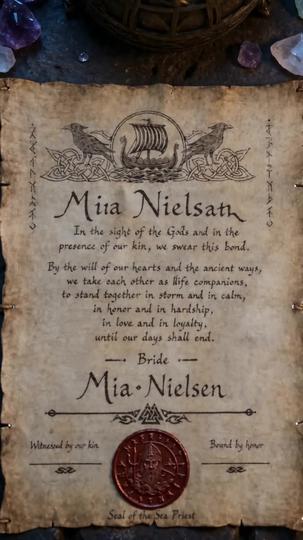 Miia Nielsatn
In the sight of the Gods and in the
presence of our kin, we swear this bond.
By the will of our hearts and the ancient ways,
we take each other as llife companions,
to stand together in storm and in calm,
in honor and in hardship,
in love and in loyalty,
until our days shall end.
Bride
Mia·Nielsen
Witnessed by our kin
Bound by honor
Seal of the Sea Priest